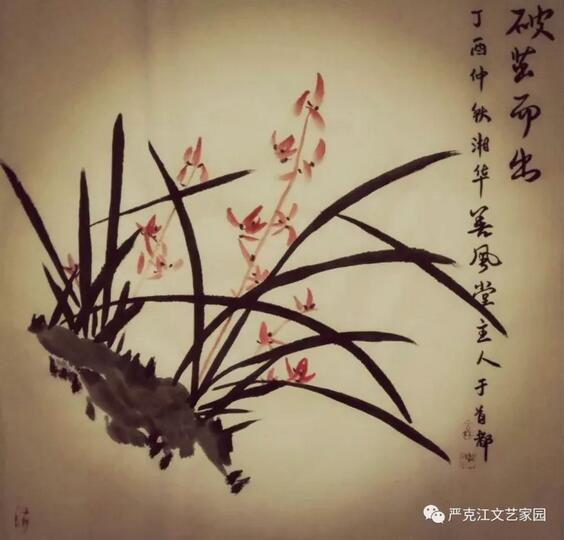 破茧而出
丁酉仲秋湘华善风堂主人于首都
严克江文艺家园